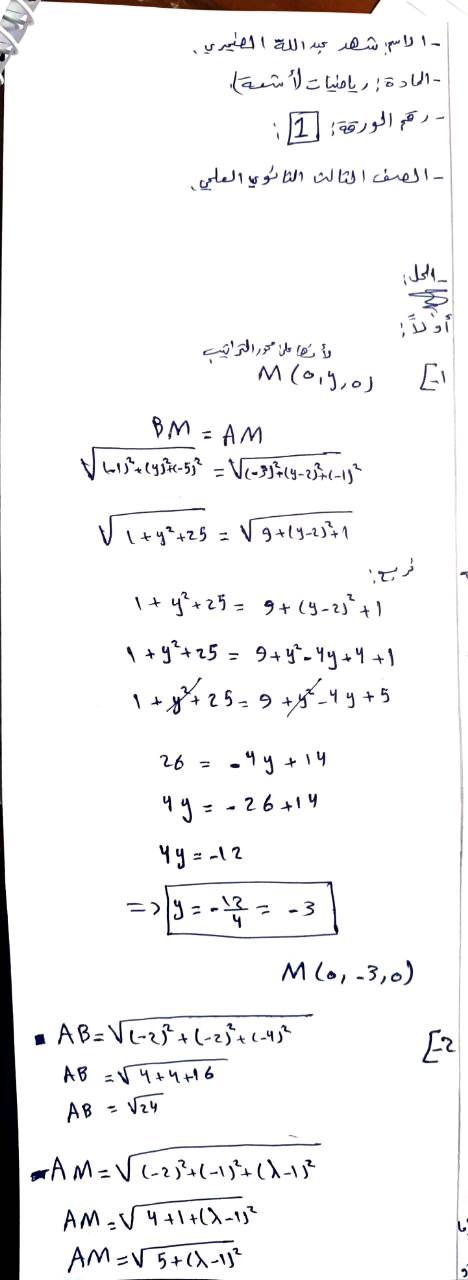 - الاسم: شهد عبد الله
- المادة: رياضيات (أشعة)
- رقم الورقة: 1:
- الصف الثالث الثانوي العلمي.
- الحل:
أولاً:
لأنها على محور التراتيب
1-] M(0,y,0)
BM = AM
√(-1)²+(y)²+(-5)² = √(-3)²+(y-2)²+(-1)²
√1+y²+25 = √9+(y-2)²+1
نربع:
1+y²+25 = 9+(y-2)²+1
1+y²+25 = 9+y²-4y+4+1
1+y²+25 = 9+y²-4y+5
26 = -4y+14
4y = -26+14
4y = -12
=> y = -12/4 = -3
M(0,-3,0)
2-] ▪ AB = √(-2)²+(-2)²+(-4)²
AB = √4+4+16
AB = √24
- AM = √(-2)²+(-1)²+(λ-1)²
AM = √4+1+(λ-1)²
AM = √5+(λ-1)²